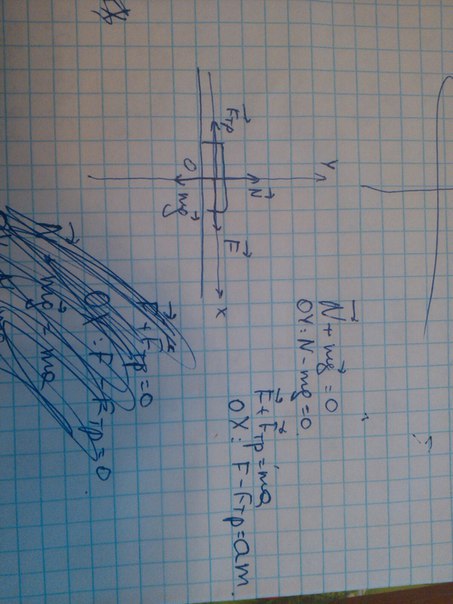 Y
N
Fтр
F
O
mg
X
N + mg = 0
OY: N - mg = 0
F + Fтр = ma
OX: F - Fтр = am
F + Fтр = 0
OX: F - Fтр = 0